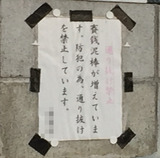 賽銭泥棒が増えていま
す。防犯の為、通り抜け
を禁止しています。